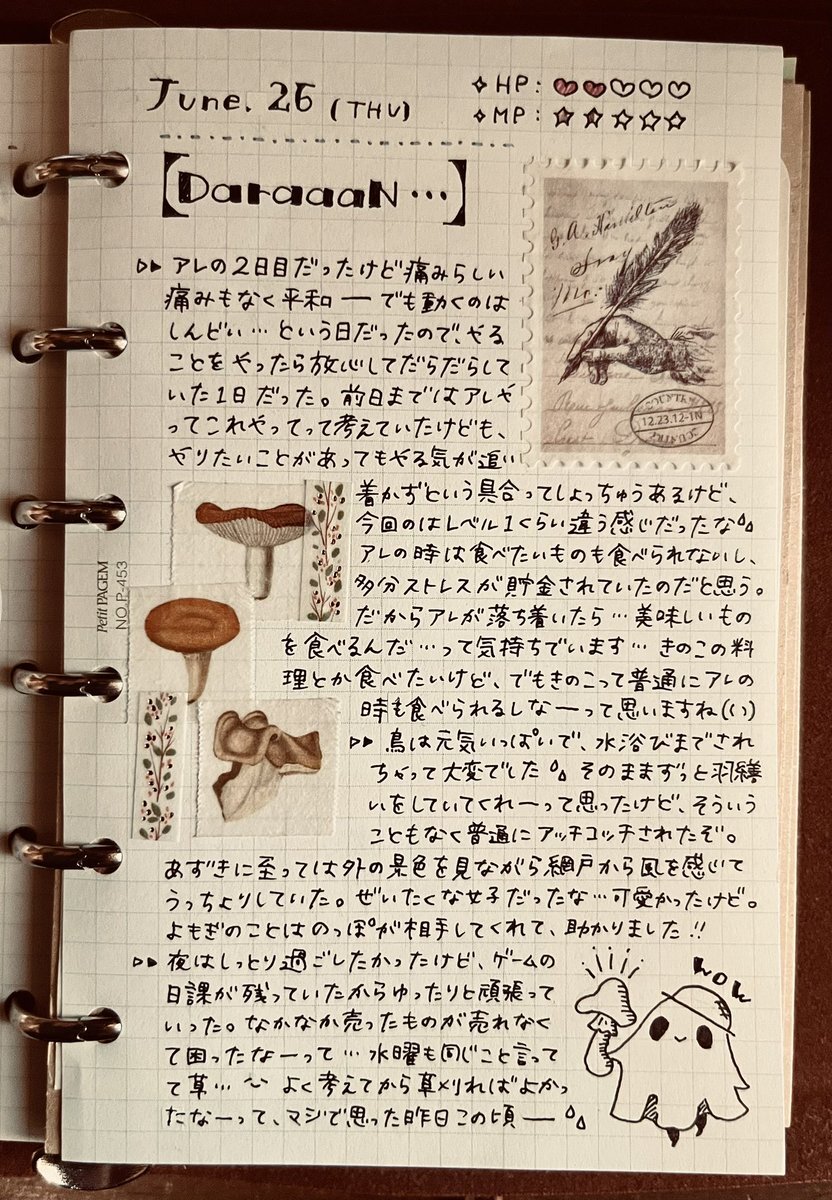 June. 26 (THU)
✧HP: ♥♥♡♡♡
✧MP: ☆☆☆☆☆
【DaraaaN…】
G. A. Hamilton
12.23.12-IN
▷▶ アレの2日目だったけど痛みらしい
痛みもなく平和ーでも動くのは
しんどい…という日だったので、やる
ことをやったら放心してだらだらして
いた1日だった。前日まではアレや
ってこれやってって考えていたけども、
やりたいことがあってもやる気が追い
着かずという具合ってしょっちゅうあるけど、
今回のはレベル1くらい違う感じだったな
アレの時は食べたいものも食べられないし、
多分ストレスが貯金されていたのだと思う。
だからアレが落ち着いたら…美味しいもの
を食べるんだ…って気持ちでいます…きのこの料
理とか食べたいけど、でもきのこって普通にアレの
時も食べられるしなーって思いますね(い)
Petit PAGEM
NO.P-453
▷▶ 鳥は元気いっぱいで、水浴びまでされ
ちゃって大変でした そのままずっと羽繕
いをしていてくれーって思ったけど、そういう
こともなく普通にアッチコッチされたぞ。
あずきに至っては外の景色を見ながら網戸から風を感じて
うっちょりしていた。ぜいたくな女子だったな…可愛かったけど。
よもぎのことはのっぽが相手してくれて、助かりました!!
▷▶ 夜はしっとり過ごしたかったけど、ゲームの
日課が残っていたからゆったりと頑張って
いった。なかなか売ったものが売れなく
て困ったなーって…水曜も同じこと言って
て草…〜 よく考えてから草刈ればよかっ
たなーって、マジで思った昨日この頃ー
wow